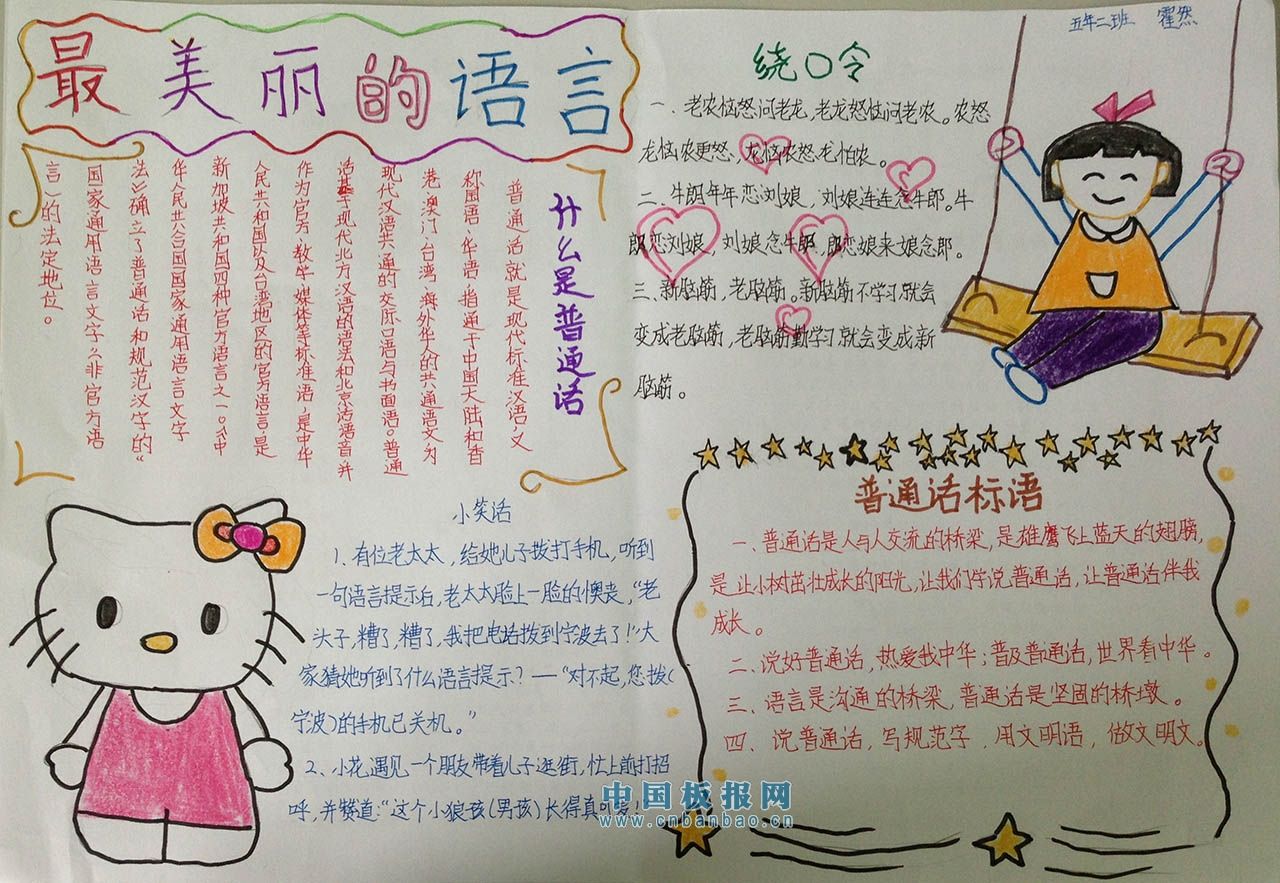 最美丽的语言
什么是普通话
普通话就是现代标准汉语,又
称国语、华语,指通于中国大陆和香
港、澳门、台湾、海外华人的共通语文,为
现代汉语共通的交际口语与书面语。普通
话基于现代北方汉语的语法和北京话语音,并
作为官方、教学、媒体等标准语,是中华
人民共和国以及台湾地区的官方语言,是
新加坡共和国四种官方语言之一。《中
华人民共合国国家通用语言文字
法》确立了普通话和规范汉字的“
国家通用语言文字”(非官方语
言)的法定地位。
小笑话
1、有位老太太,给她儿子拨打手机,听到
一句语言提示后,老太太脸上一脸的懊丧,“老
头子,糟了,糟了,我把电话拨到宁波去了!”大
家猜她听到了什么语言提示?—“对不起,您拨(
宁波)的手机已关机。”
2、小花遇见一个朋友带着儿子逛街,忙上前打招
呼,并赞道:“这个小狼孩(男孩)长得真可爱!
五年二班 霍然
绕口令
一、老农恼怒问老龙,老龙怒恼问老农。农怒
龙恼农更怒,龙恼农怒龙怕农。
二、牛郎年年恋刘娘,刘娘连连念牛郎。牛
郎恋刘娘,刘娘念牛郎,郎恋娘来娘念郎。
三、新脑筋,老脑筋。新脑筋不学习就会
变成老脑筋,老脑筋勤学习就会变成新
脑筋。
普通话标语
一、普通话是人与人交流的桥梁,是雄鹰飞上蓝天的翅膀,
是让小树茁壮成长的阳光,让我们学说普通话,让普通话伴我
成长。
二、说好普通话,热爱我中华;普及普通话,世界看中华。
三、语言是沟通的桥梁,普通话是坚固的桥墩。
四、说普通话,写规范字,用文明语,做文明文。
中国板报网
www.cnbanbao.cn